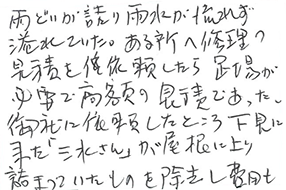 雨どいが詰り雨水が流れず
溢れていた。ある所へ修理の
見積を依頼したら足場が
必要で高額の見積であった。
御社に依頼したところ下見に
来た「三水さん」が屋根に上り
詰まっていたものを除去し費用も